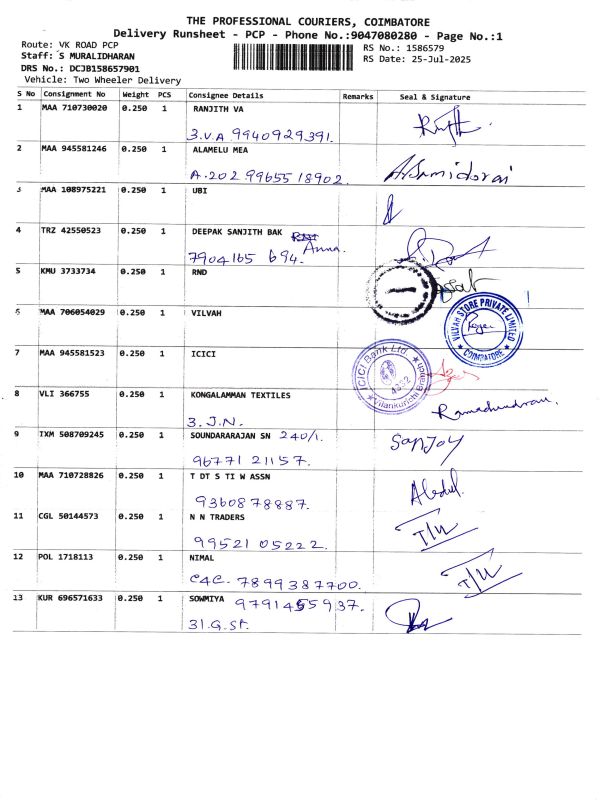 THE PROFESSIONAL COURIERS, COIMBATORE
Delivery Runsheet - PCP - Phone No.:9047080280 - Page No.:1
Route: VK ROAD PCP
RS No.: 1586579
Staff: S MURALIDHARAN
RS Date: 25-Jul-2025
DRS No.: DCJB158657901
Vehicle: Two Wheeler Delivery
S No Consignment No Weight PCS Consignee Details Remarks Seal & Signature
1 MAA 710730020 0.250 1 RANJITH VA
3.V.A 9940929391.
2 MAA 945581246 0.250 1 ALAMELU MEA
A.202 9965518902.
3 MAA 108975221 0.250 1 UBI
4 TRZ 42550523 0.250 1 DEEPAK SANJITH BAK
Anna.
7904165 694.
5 KMU 3733734 0.250 1 RND
6 MAA 706054029 0.250 1 VILVAH
VILVAH STORE PRIVATE LIMITED
★ COIMBATORE ★
7 MAA 945581523 0.250 1 ICICI
ICICI Bank Ltd.
4332
Vilankurichi Branch
8 VLI 366755 0.250 1 KONGALAMMAN TEXTILES
3.J.N.
Ramachandran.
9 IXM 508709245 0.250 1 SOUNDARARAJAN SN 240/1.
96771 21157.
SanJoy
10 MAA 710728826 0.250 1 T DT S TI W ASSN
9360878887.
Abdul.
11 CGL 50144573 0.250 1 N N TRADERS
99521 05222.
T/U
12 POL 1718113 0.250 1 NIMAL
C4C. 7899387700.
T/U
13 KUR 696571633 0.250 1 SOWMIYA 9791455937.
31.G.St.